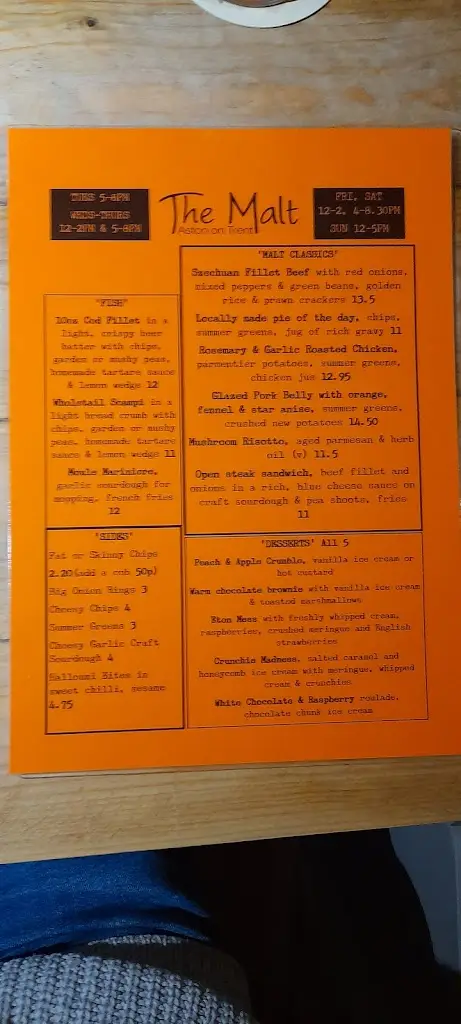 TUES 5-8PM
WEDS-THURS
12-2PM & 5-8PM
The Malt
Aston on Trent
FRI, SAT
12-2, 4-8.30PM
SUN 12-5PM
'FISH'
10oz Cod Fillet in a
light, crispy beer
batter with chips,
garden or mushy peas,
homemade tartare sauce
& lemon wedge 12
Wholetail Scampi in a
light bread crumb with
chips, garden or mushy
peas, homemade tartare
sauce & lemon wedge 11
Moule Mariniere,
garlic sourdough for
mopping, french fries
12
'SIDES'
Fat or Skinny Chips
2.20(add a cob 50p)
Big Onion Rings 3
Cheesy Chips 4
Summer Greens 3
Cheesy Garlic Craft
Sourdough 4
Halloumi Bites in
sweet chilli, sesame
4.75
'MALT CLASSICS'
Szechuan Fillet Beef with red onions,
mixed peppers & green beans, golden
rice & prawn crackers 13.5
Locally made pie of the day, chips,
summer greens, jug of rich gravy 11
Rosemary & Garlic Roasted Chicken,
parmentier potatoes, summer greens,
chicken jus 12.95
Glazed Pork Belly with orange,
fennel & star anise, summer greens,
crushed new potatoes 14.50
Mushroom Risotto, aged parmesan & herb
oil (v) 11.5
Open steak sandwich, beef fillet and
onions in a rich, blue cheese sauce on
craft sourdough & pea shoots, fries
11
'DESSERTS' All 5
Peach & Apple Crumble, vanilla ice cream or
hot custard
Warm chocolate brownie with vanilla ice cream
& toasted marshmallows
Eton Mess with freshly whipped cream,
raspberries, crushed meringue and English
strawberries
Crunchie Madness, salted caramel and
honeycomb ice cream with meringue, whipped
cream & crunchies
White Chocolate & Raspberry roulade,
chocolate chunk ice cream